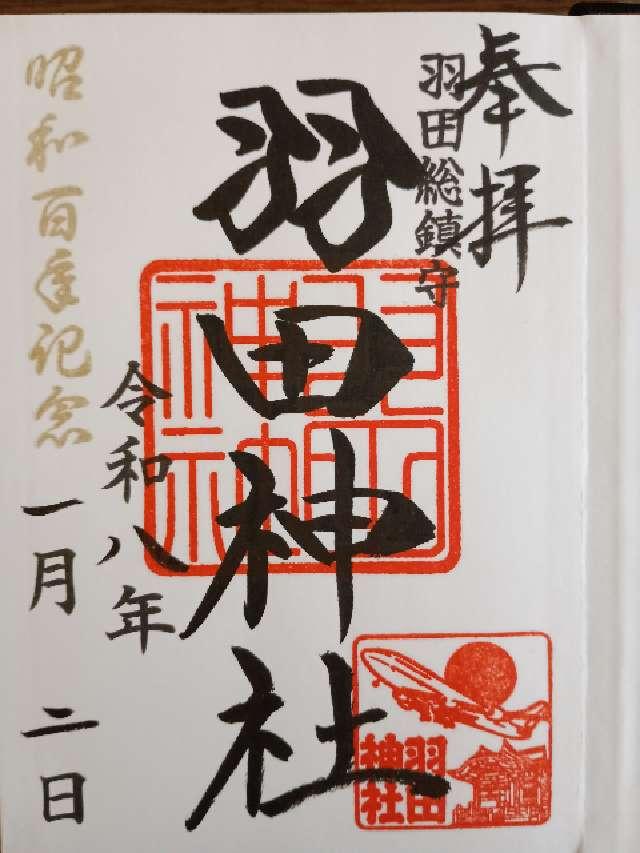 奉拝
羽田総鎮守
羽田神社
令和八年
一月二日
昭和百年記念
羽田
神社